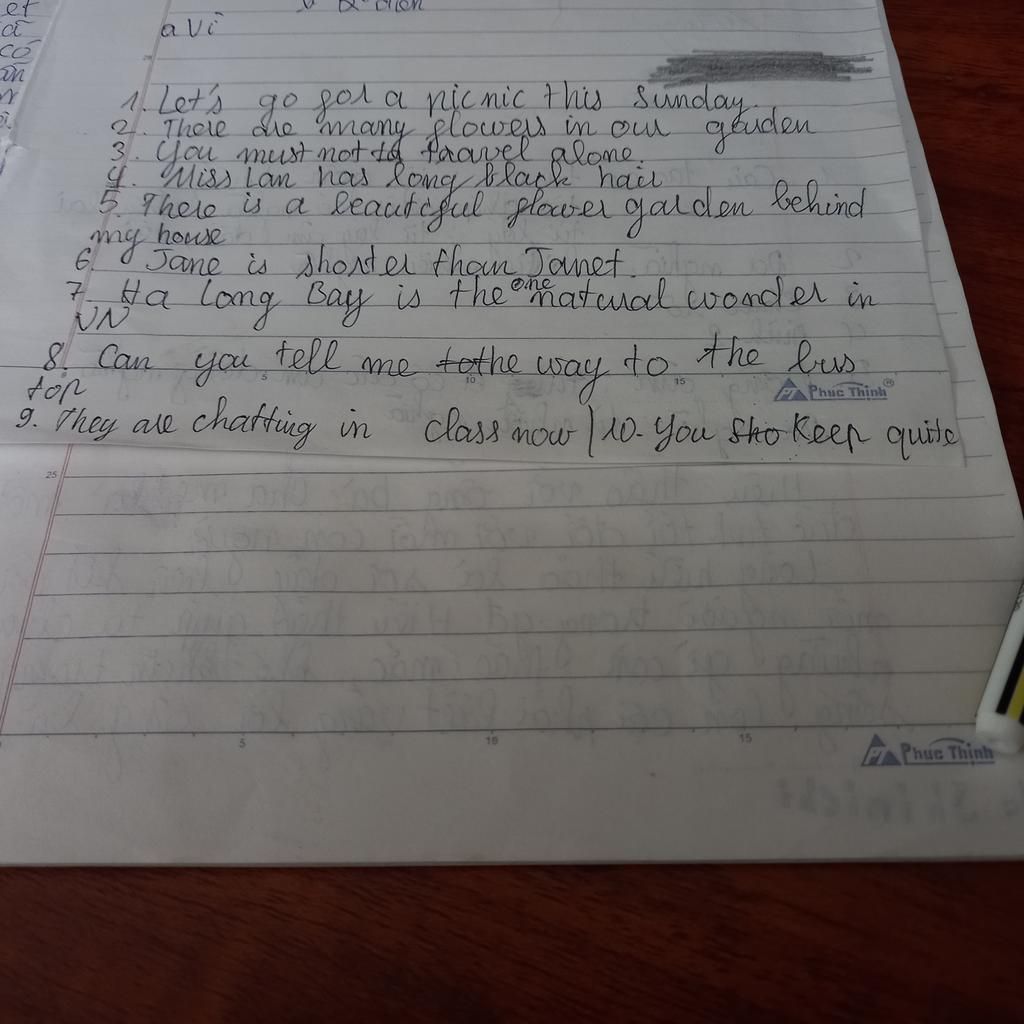 et
có
a Vì
1. Let's go for a picnic this Sunday.
2. There are many flowers in our garden
3. You must not to travel alone.
4. Miss Lan has long black hair
5. There is a beautiful flower garden behind
my house
6 Jane is shorter than Janet.
7. Ha Long Bay is the one natural wonder in
VN
8. Can you tell me to the way to the bus
top
5 10 15 Phuc Thinh®
9. They are chatting in class now / 10. You sho Keep quite
25
5 10 15
Phuc Thinh